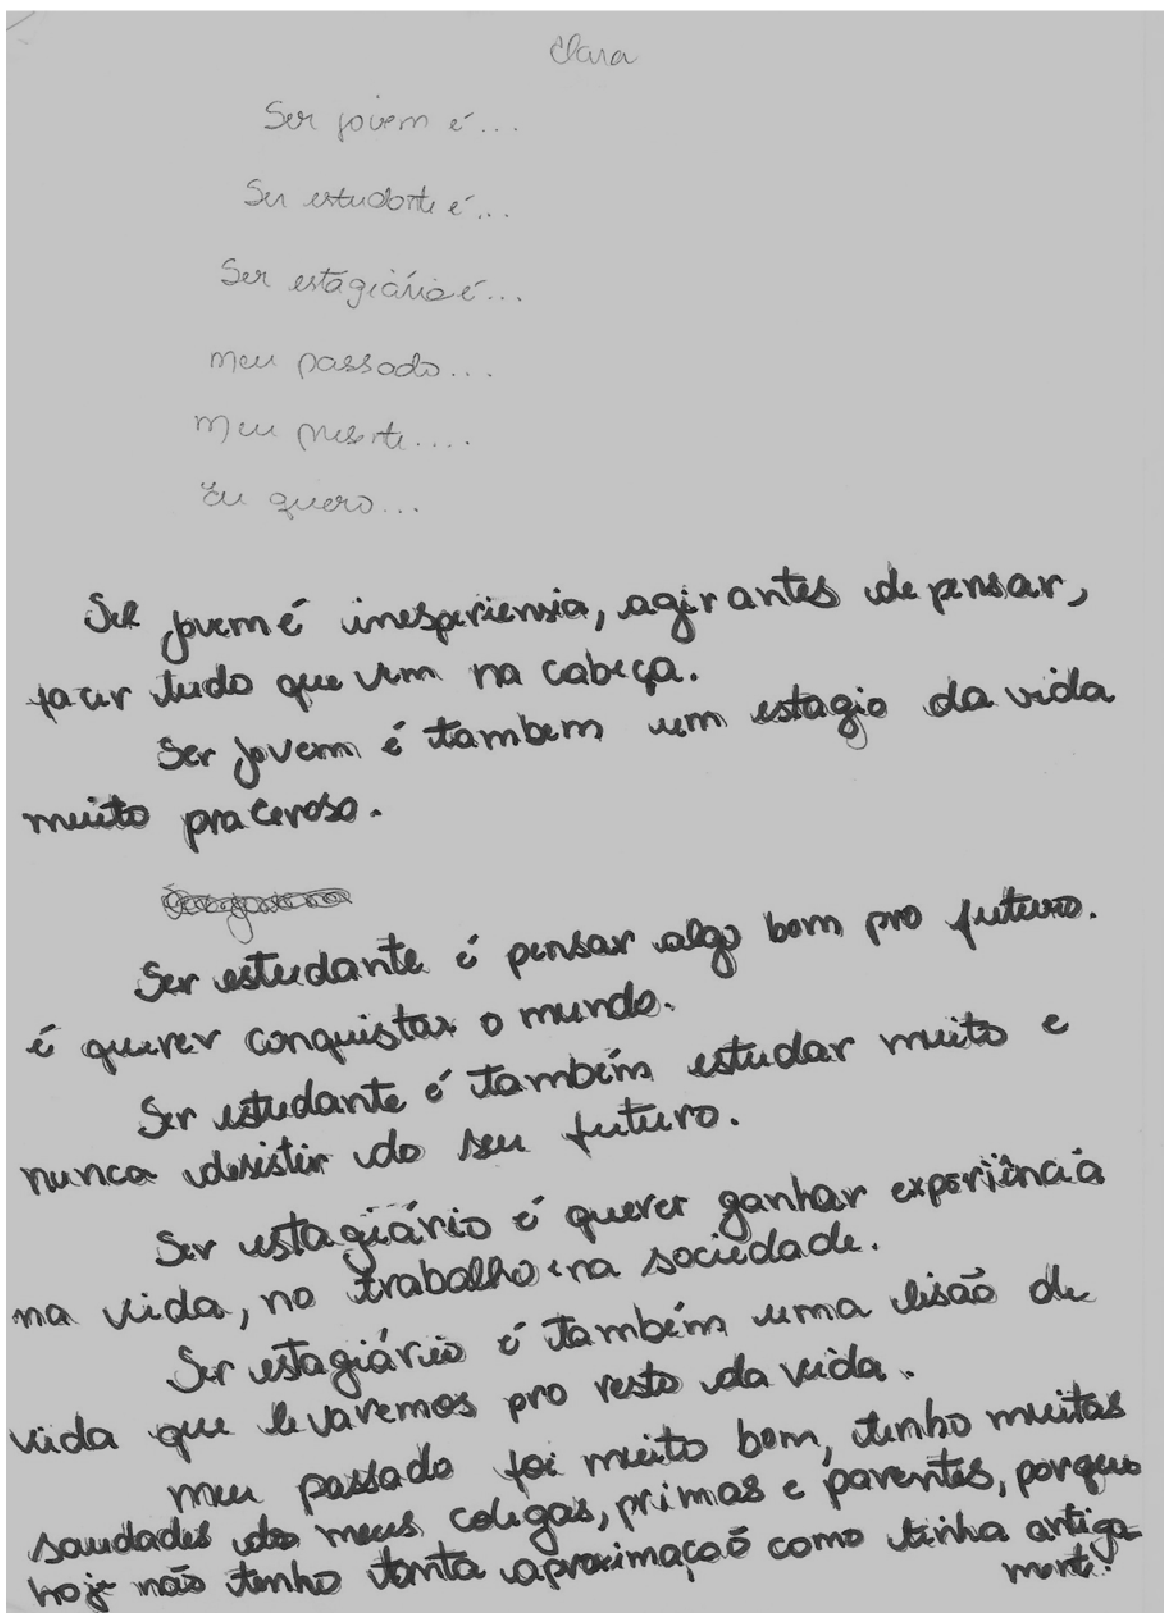 Clara
Ser jovem é...
Ser estudante é...
Ser estágiário é...
Meu passado...
Meu presente....
Eu quero...
Ser jovem é inesperiensia, agir antes de pensar,
facer tudo que vem na cabeça.
Ser jovem é tambem um estagio da vida
muito praceroso.
Ser estudante é pensar algo bom pro futuro.
é querer conquistar o mundo.
Ser estudante é também estudar muito e
nunca desistir do seu futuro.
Ser estagiário é querer ganhar experiência
na vida, no trabalho e na sociedade.
Ser estagiário é também uma lisão de
vida que levaremos pro resto da vida.
Meu passado foi muito bom, tenho muitas
saudades dos meus colegas, primas e parentes, porque
hoje não tenho tanta aproximação como tinha antiga-
mente.